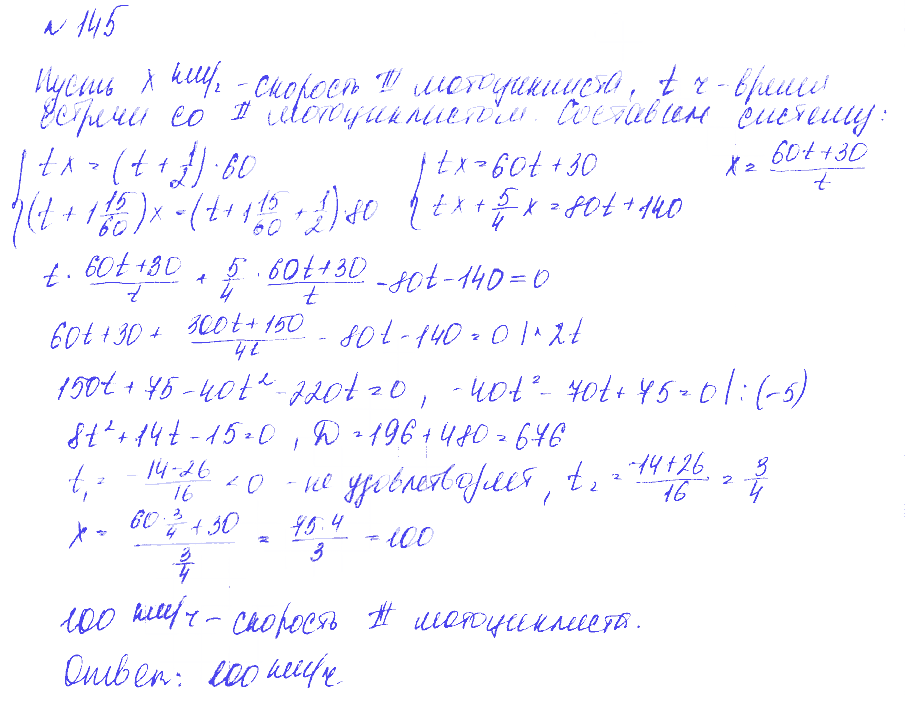 № 145
Пусть x км/ч - скорость III мотоциклиста, t ч - время
встречи со II мотоциклистом. Составим систему:
{ tx = (t + 1/2) · 60 { tx = 60t + 30 x = (60t + 30)/t
{ (t + 1 15/60)x = (t + 1 15/60 + 1/2) · 80 { tx + 5/4 x = 80t + 140
t · (60t + 30)/t + 5/4 · (60t + 30)/t - 80t - 140 = 0
60t + 30 + (300t + 150)/4t - 80t - 140 = 0 | · 2t
150t + 75 - 40t² - 220t = 0, -40t² - 70t + 75 = 0 | : (-5)
8t² + 14t - 15 = 0, D = 196 + 480 = 676
t₁ = (-14-26)/16 < 0 - не удовлетворяет, t₂ = (-14+26)/16 = 3/4
x = (60 · 3/4 + 30)/(3/4) = (75·4)/3 = 100
100 км/ч - скорость III мотоциклиста.
Ответ: 100 км/ч.